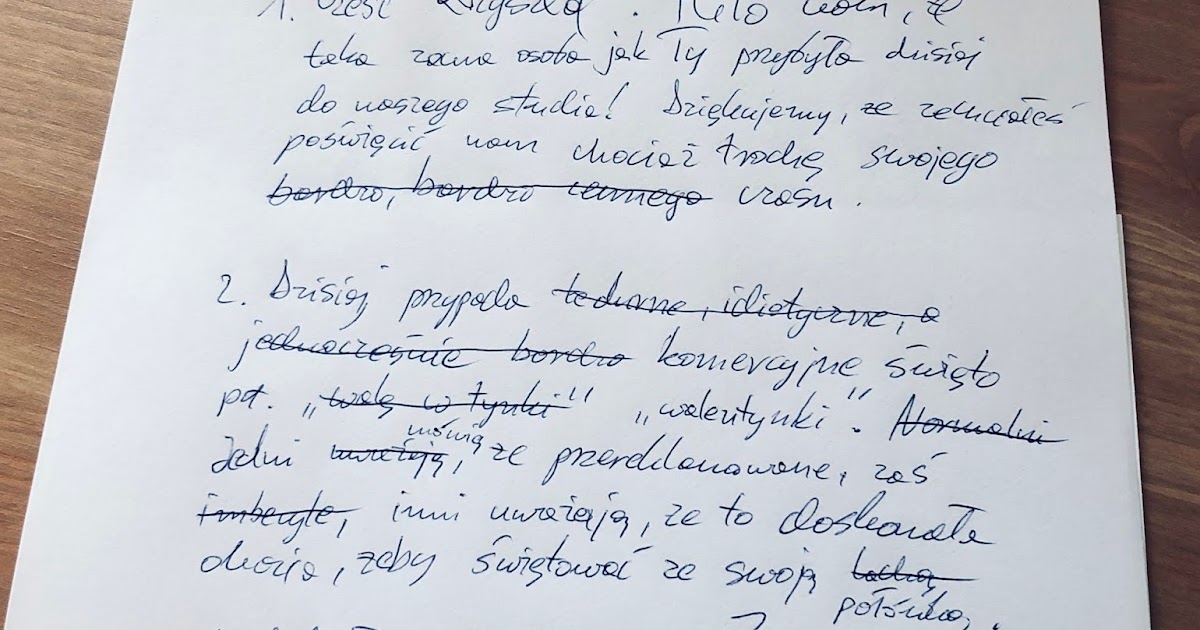 1. Cześć . Miło nam, że
taka zacna osoba jak Ty przybyła dzisiaj
do naszego studia! Dziękujemy, że zechciałeś
poświęcić nam chociaż trochę swojego
bardzo, bardzo cennego czasu.
2. Dzisiaj przypada te durne, idiotyczne, a
jednocześnie bardzo komercyjne święto
pt. „walę w tynki" „walentynki". Normalni
mówią
Jedni uważają, że przereklamowane, zaś
imbecyle, inni uważają, że to doskonała
okazja, żeby świętować ze swoją lochą
połówką.